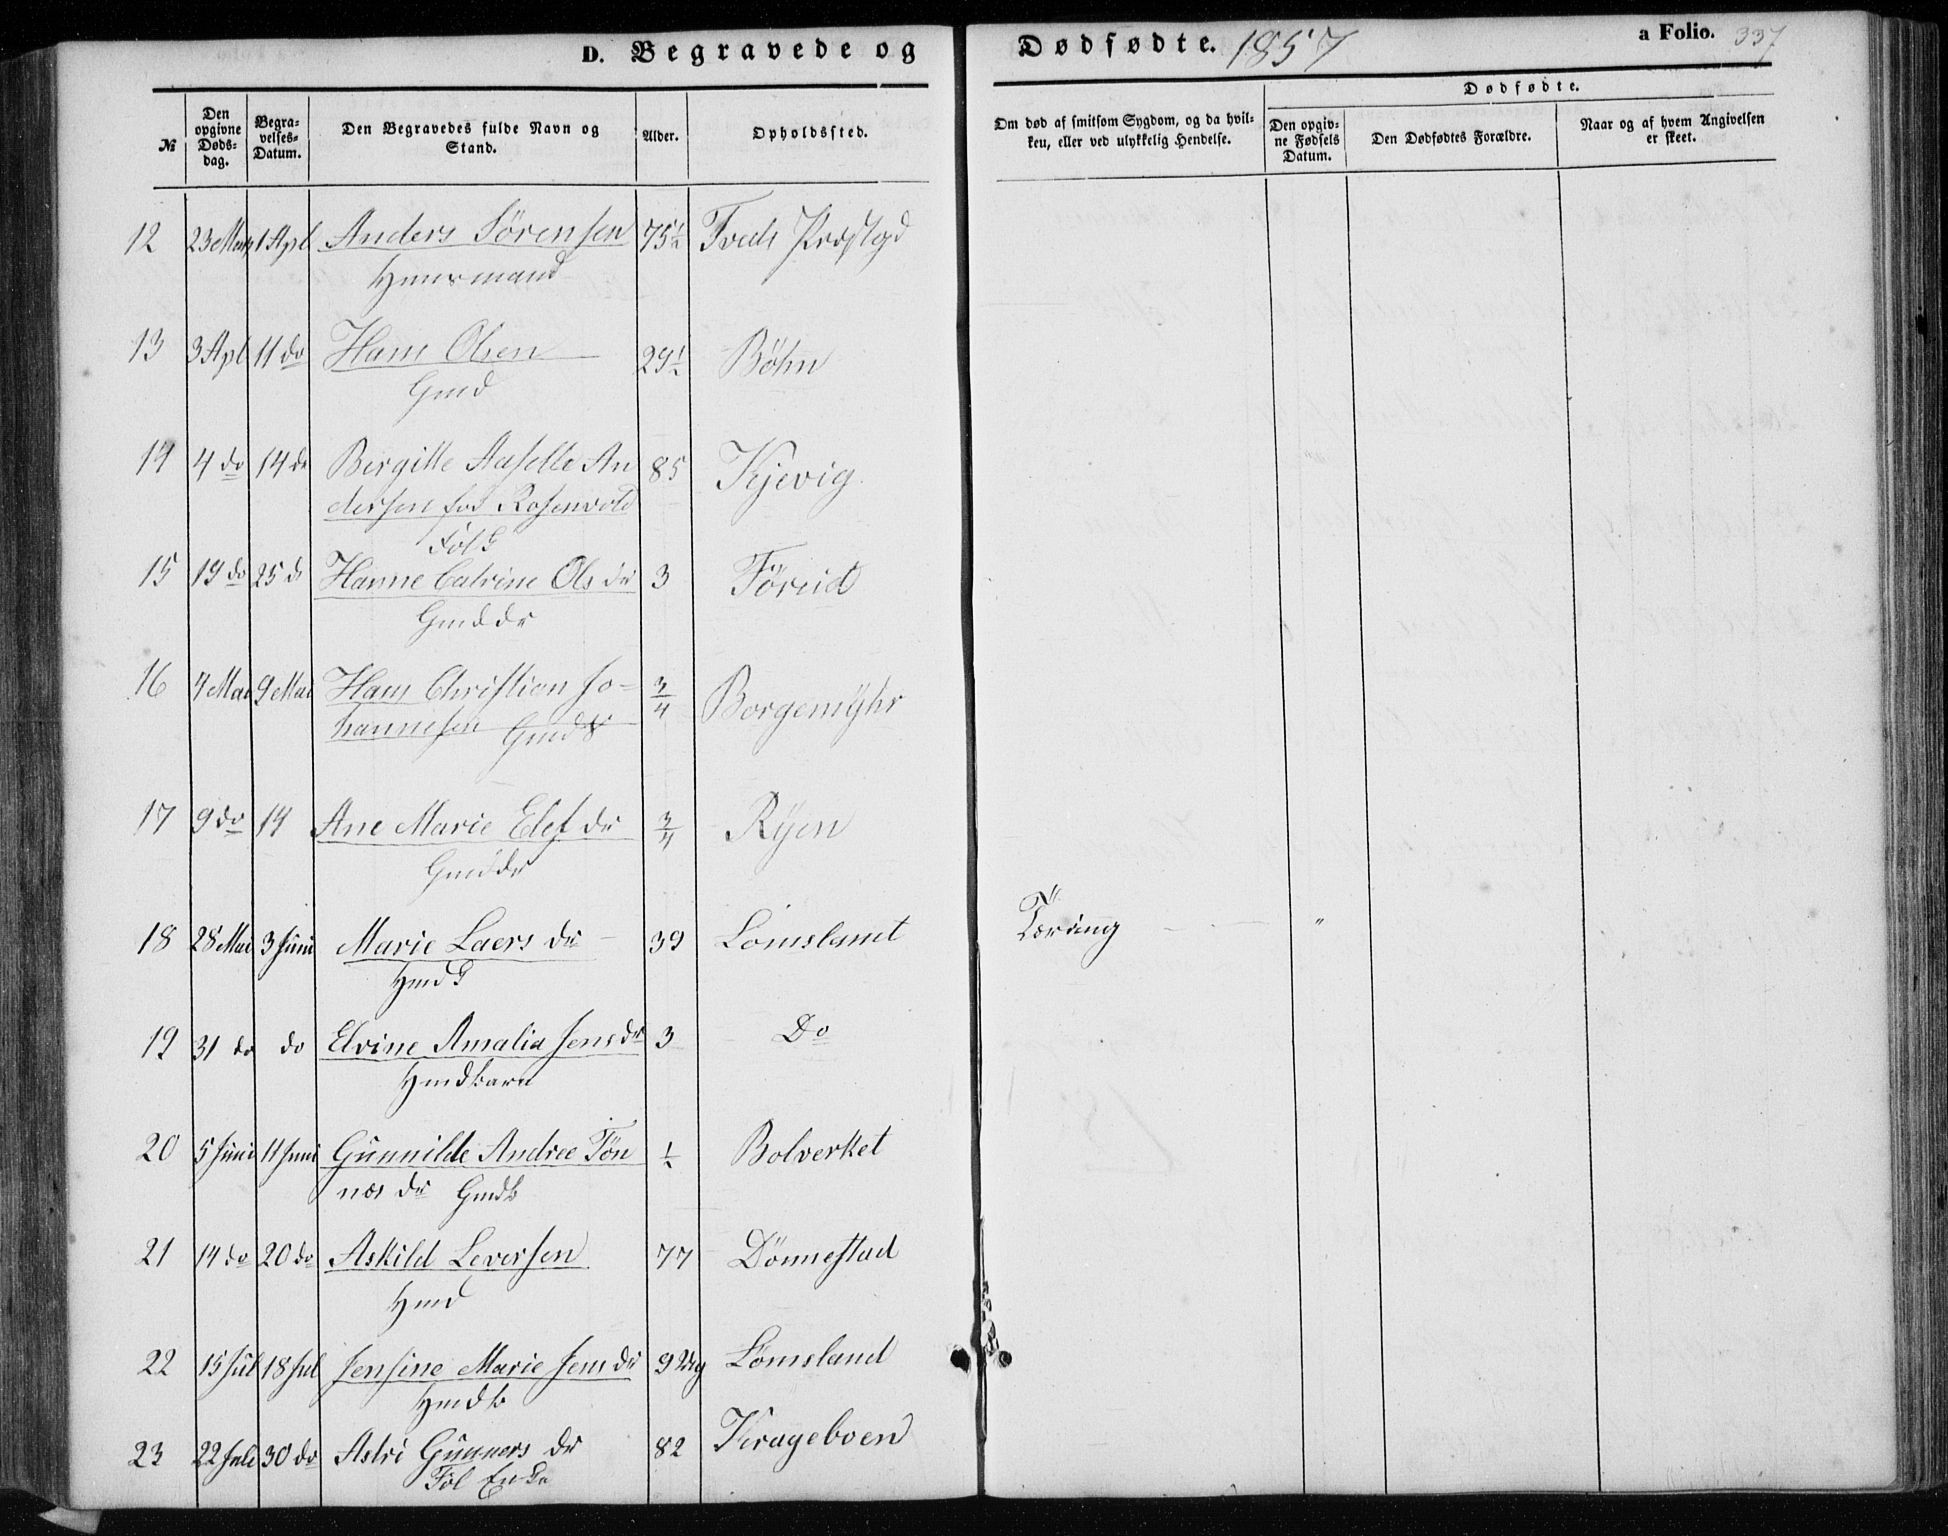 D. Begravede og Dødfødte. 1857 a Folio. 337
№ Den opgivne Døds-dag. Begra-velses-Datum. Den Begravedes fulde Navn og Stand. Alder. Opholdssted. Om død af smitsom Sygdom, og da hvil-ken, eller ved ulykkelig Hendelse. Dødfødte. Den opgiv-ne Fødsels Datum. Den Dødfødtes Forældre. Naar og af hvem Angivelsen er skeet.
12 23 Marts 1 Apl Anders Sörensen 75½ Tveds Præstgd
Huusmand
13 3 Apl 11 do Hans Olsen 29½ Böhn
Gmd
14 4 do 14 do Birgitte An 85 Kjevig
dersen fød Rosenvold
Föl
15 19 do 25 d Hanne Catrine Ols dr 3 Töveid
Gmd dr
16 4 Mai 9 Mai Hans Christian Jo- ¾ Borgemyhr
hannesen Gmds
17 9 do 14 Ane Marie Elef dr ¾ Ryen
Gmd dr
18 28 Mai 3 Juni Marie Laers dr 39 Lömslamt Tæring "
Hmd
19 31 do do Elvine Amalia Jens dr 3 Do
Hmdbarn
20 5 Juni 11 Juni Gunnilde Andree Tön ½ Bolverket
nes dr Gmdb
21 14 do 20 do Askild Leversen 77 Dönnestad
Hmd
22 15 Jul 18 Jul Jensine Marie Jens dr 9 Ug Lömsland
Hmdb
23 22 Juli 30 do Astri Gunners dr 82 Krageboen
Föl Enke